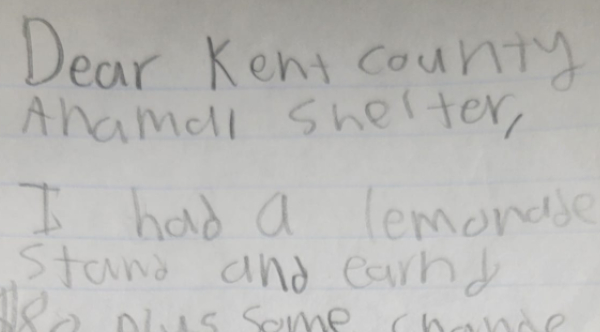 Dear Kent county
Anamall Shelter,
I had a lemonade
Stand and earnd
plus some change